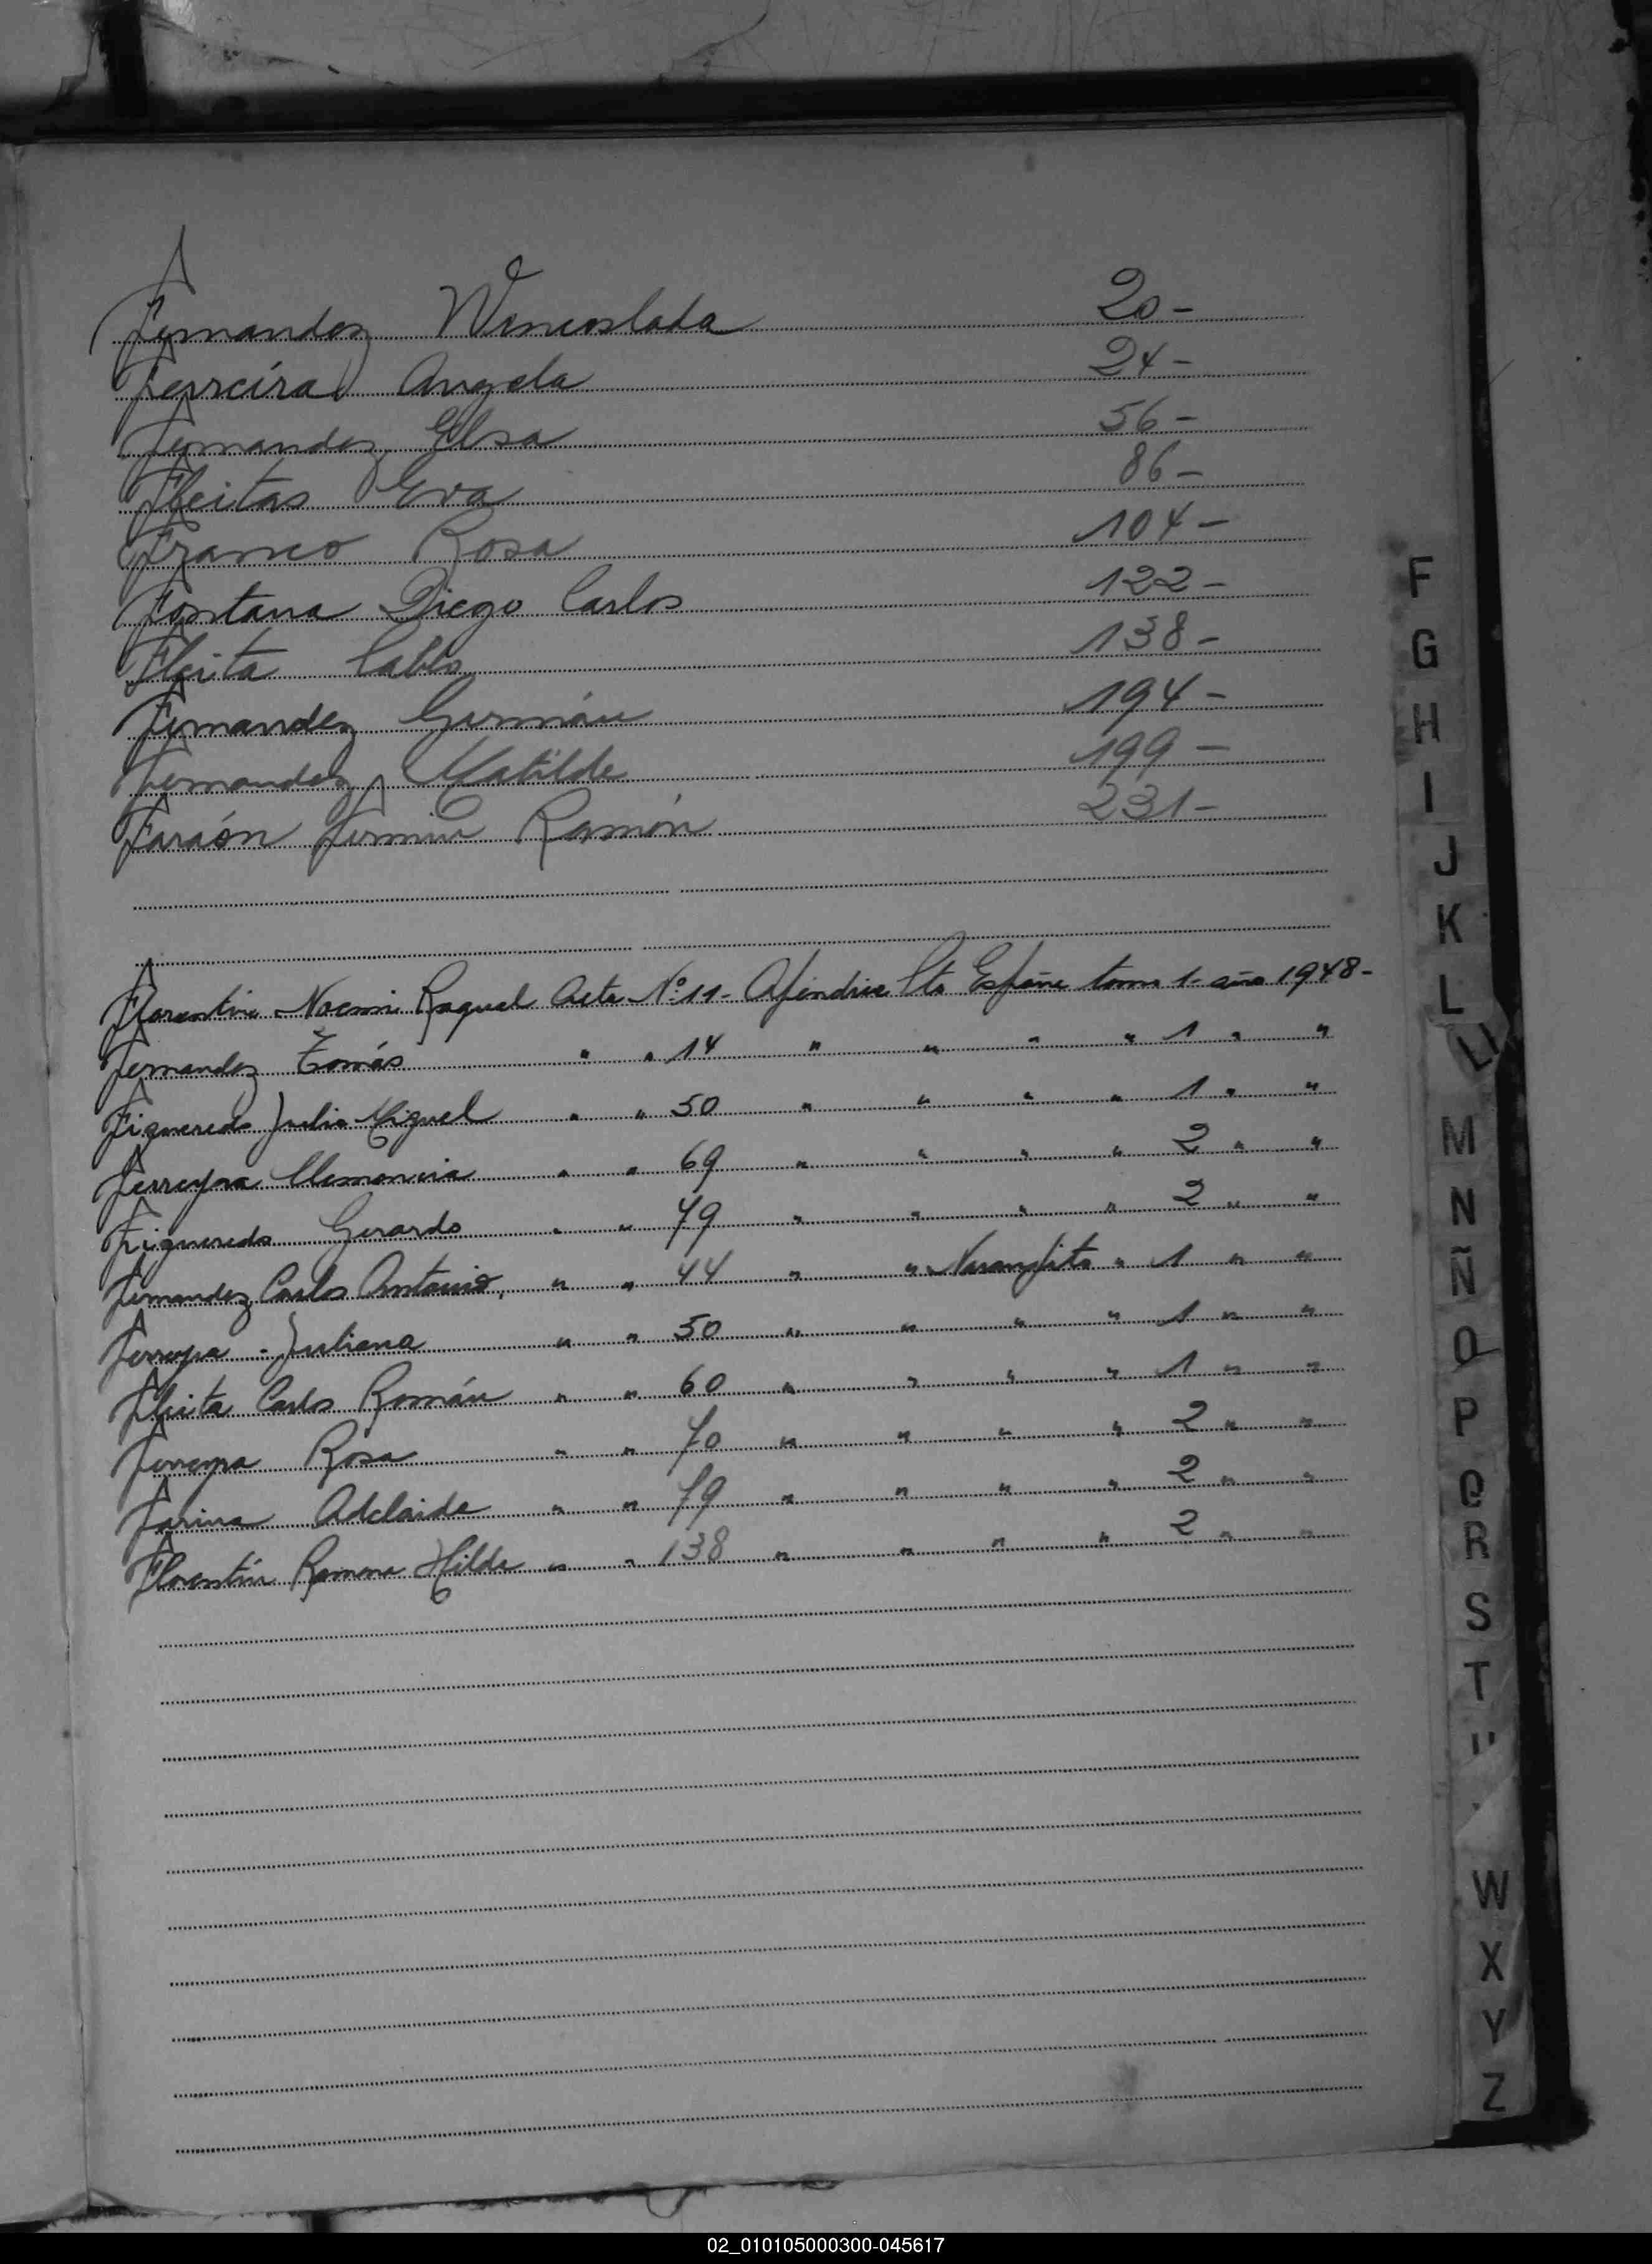 Fernandez Wenceslada 20-
Ferreira Angela 24-
Fernandez Elsa 56-
Fleitas Eva 86-
Franco Rosa 104-
Fontana Diego Carlos 122-
Fleita Pablo 138-
Fernandez Germán 194-
Fernandez Matilde 199-
Faraón Fermin Ramón 231-
Florentin Noemi Raquel Acta Nº 11- Apendice Pto España tomo 1- año 1948-
Fernandez Tomás " " 14 " " " " 1 " "
Figueredo Julio Miguel " " 50 " " " " 1 " "
Ferreyra Clemencia " " 69 " " " " 2 " "
Figueredo Gerardo " " 79 " " " " 2 " "
Fernandez Carlos Antonio, " " 44 " " Naranjito " 1 " "
Ferreyra - Juliana " " 50 " " " " 1 " "
Fleita Carlos Román " " 60 " " " " 1 " "
Ferreyra Rosa " " 70 " " " " 2 " "
Farina Adelaida " " 79 " " " " 2 " "
Florentin Ramona Hilda " " 138 " " " " 2 " "
F
G
H
I
J
K
L
LL
M
N
Ñ
O
P
Q
R
S
T
W
X
Y
Z
02_010105000300-045617